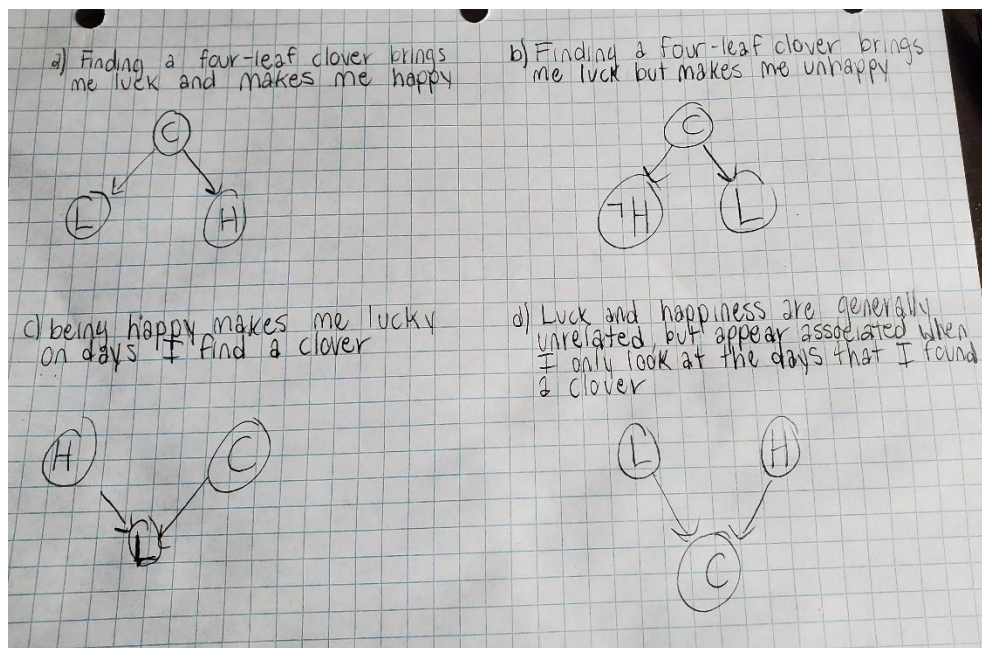 a) Finding a four-leaf clover brings
me luck and makes me happy
C
L
H
b) Finding a four-leaf clover brings
me luck but makes me unhappy
C
¬H
L
c) being happy makes me lucky
on days I find a clover
H
C
L
d) Luck and happiness are generally
unrelated, but appear associated when
I only look at the days that I found
a clover
L
H
C